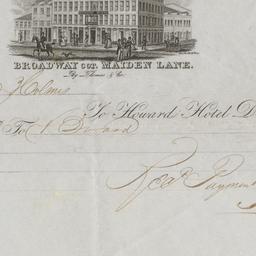 BROADWAY cor. MAIDEN LANE.
By Thomas & Co.
Holmes
To Howard Hotel D
To 1 Board
Recd Payment